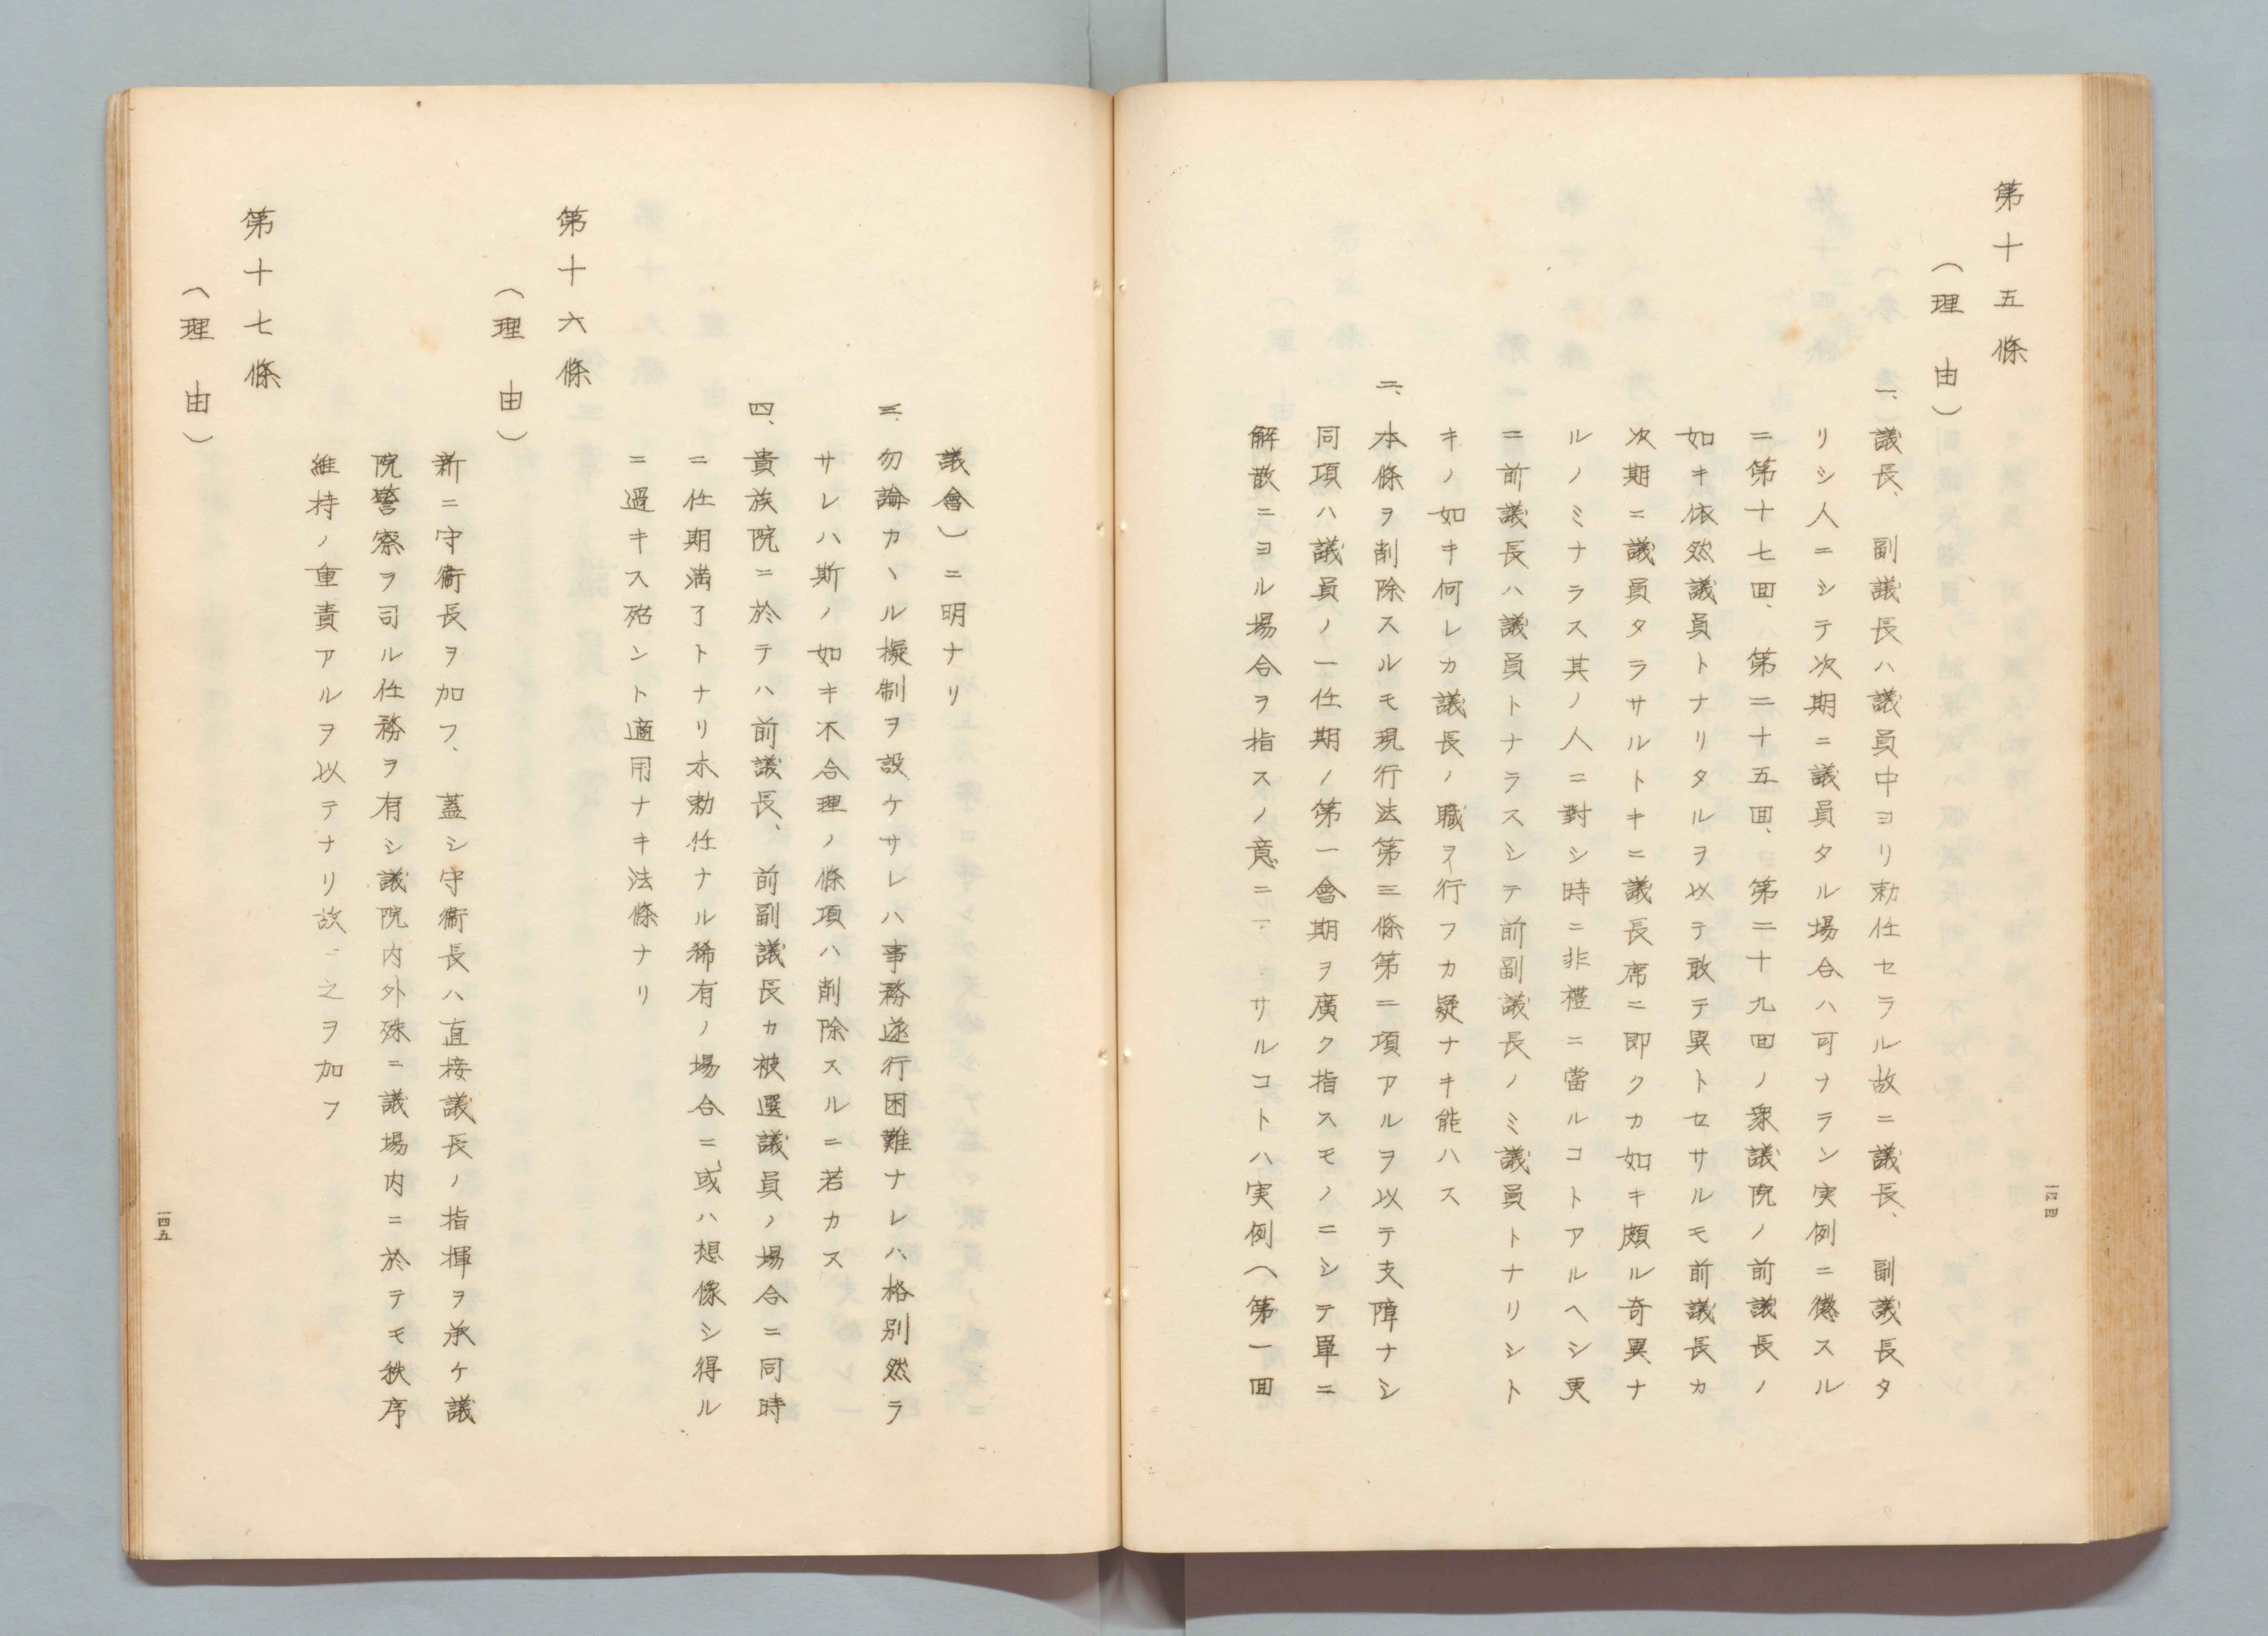 第十五條
（理由）
一、議長、副議長ハ議員中ヨリ勅任セラル故ニ議長、副議長タ
リシ人ニシテ次期ニ議員タル場合ハ可ナラン実例ニ徴スル
ニ第十七囬、第二十五囬、第二十九囬ノ衆議院ノ前議長ノ
如キ依然議員トナリタルヲ以テ敢テ異トセサルモ前議長カ
次期ニ議員タラサルトキニ議長席ニ即クカ如キ頗ル奇異ナ
ルノミナラス其ノ人ニ對シ時ニ非禮ニ當ルコトアルヘシ更
ニ前議長ハ議員トナラスシテ前副議長ノミ議員トナリシト
キノ如キ何レカ議長ノ職ヲ行フカ疑ナキ能ハス
二、本條ヲ削除スルモ現行法第三條第二項アルヲ以テ支障ナシ
同項ハ議員ノ一任期ノ第一會期ヲ廣ク指スモノニシテ單ニ
解散ニヨル場合ヲ指スノ意ニ サルコトハ実例（第一囬
一四四
議會）ニ明ナリ
三、勿論カヽル擬制ヲ設ケサレハ事務遂行困難ナレハ格別然ラ
サレハ斯ノ如キ不合理ノ條項ハ削除スルニ若カス
四、貴族院ニ於テハ前議長、前副議長カ被選議員ノ場合ニ同時
ニ任期満了トナリ未勅任ナル稀有ノ場合ニ或ハ想像シ得ル
ニ過キス殆ント適用ナキ法條ナリ
第十六條
（理由）
新ニ守衞長ヲ加フ、蓋シ守衞長ハ直接議長ノ指揮ヲ承ケ議
院警察ヲ司ル任務ヲ有シ議院内外殊ニ議場内ニ於テモ秩序
維持ノ重責アルヲ以テナリ故ニ之ヲ加フ
第十七條
（理由）
一四五